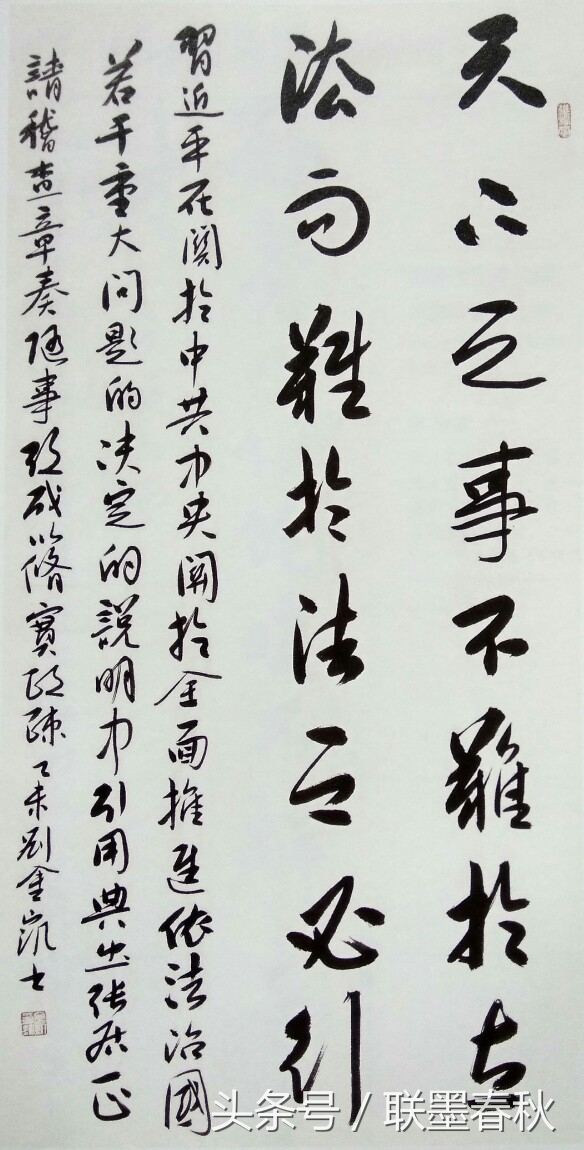 天下之事不難於立
法而難於法之必行
習近平在關於中共中央關於全面推進依法治國
若干重大問題的決定的說明中引用典出張居正
請稽查章奏隨事考成以脩實政疏乙未劉金凱書
头条号 / 联墨春秋